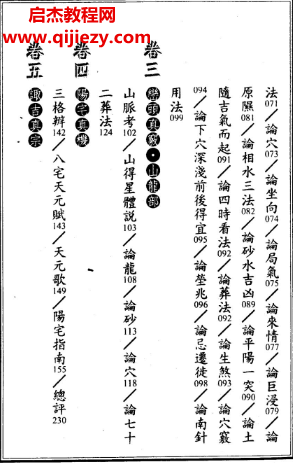 启杰教程网
www.qijiezy.com
法071／論穴073／論坐向074／論局氣075／論來情077／論巨浸079／論
原隰081／論相水三法082／論砂水吉凶089／論平陽一突090／論土
隨吉氣而起091／論四時看法092／論葬法092／論生煞093／論穴竅
094／論下穴深淺前後得宜095／論塋兆096／論忌遷徙098／論南針
用法099
卷三 巒頭真竅•山龍部
山脈考102／山得星體說103／論龍108／論砂113／論穴118／論七十
二葬法124
卷四 陽宅真
三格辨142／八宅天元賦143／天元歌149／陽宅指南155／總評230
卷五 趨吉真宗